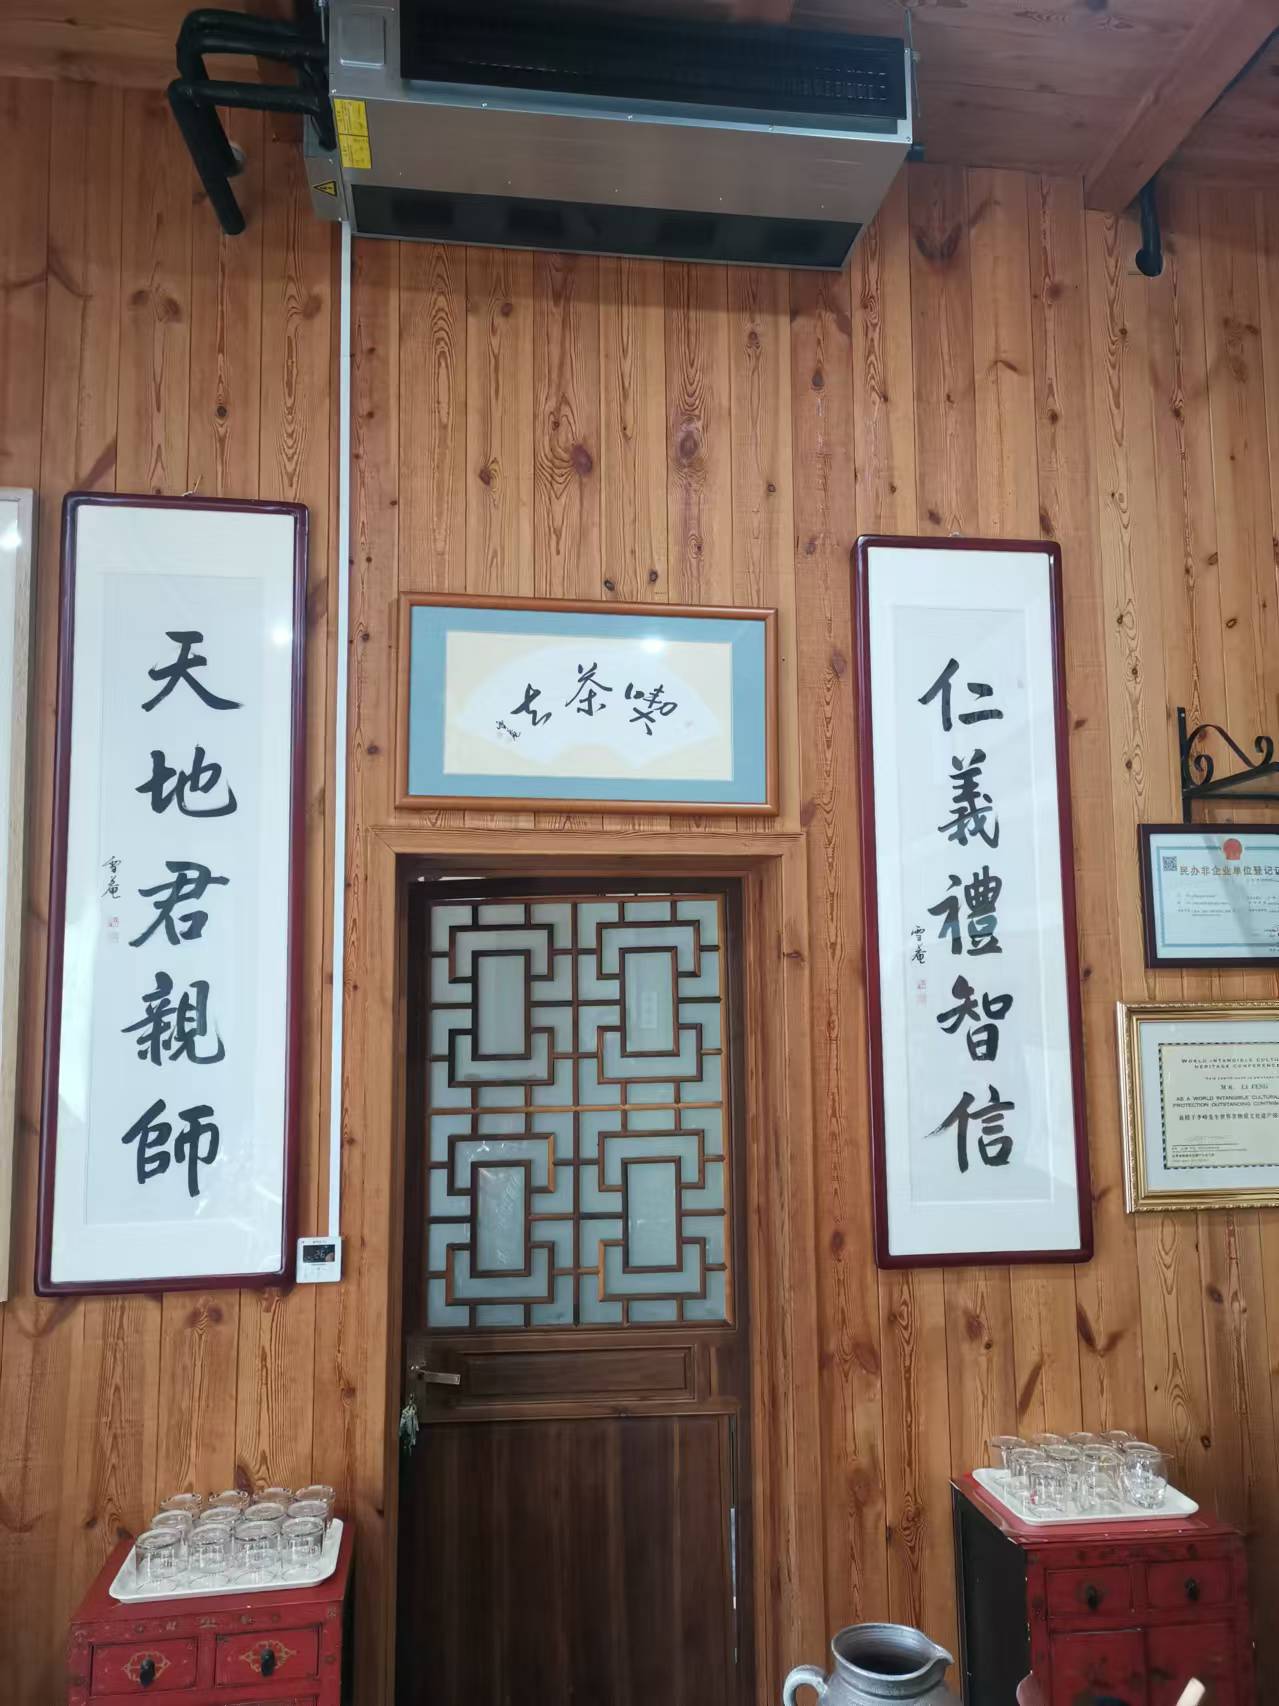 天地君親師
雪菴
喫茶去
雪菴
仁義禮智信
雪菴
民办非企业单位登记证
WORLD INTANGIBLE CULTU
HERITAGE CONFERENCE
MR. LI FENG
AS A WORLD INTANGIBLE CULTURAL
PROTECTION OUTSTANDING CONTRIB
26